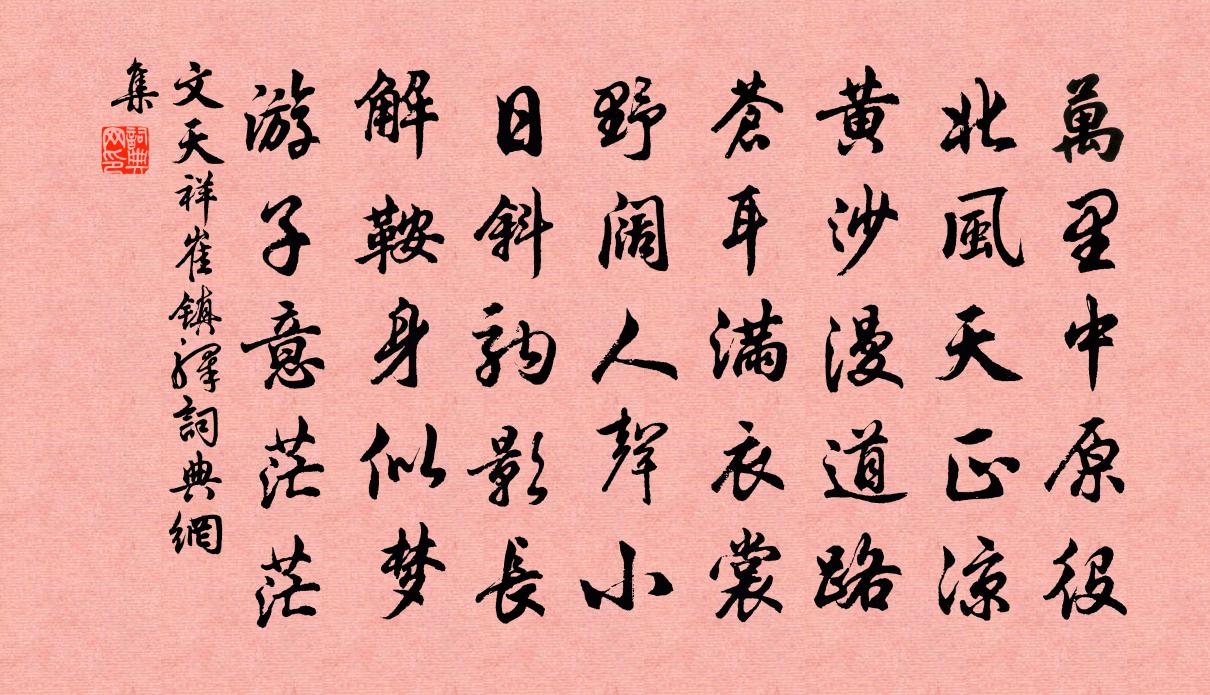 萬里中原役
北風天正涼
黃沙漫道路
蒼耳滿衣裳
野阔人聲小
日斜駒影長
解鞍身似梦
游子意茫茫
文天祥崔鎮驛詞典網
集
詞典网印